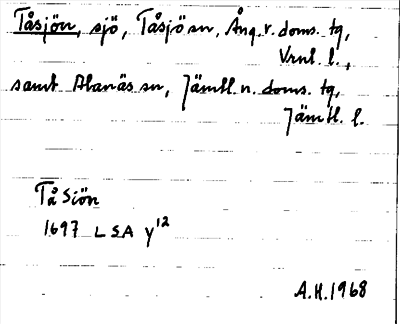 Tåsjön, sjö, Tåsjö sn, Ång.v. doms. tg,
Vrnl. l.,
samt Alanäs sn, Jämtl. n. doms. tg,
Jämtl. l.
Tå Siön
1697 LSA y12
A.H. 1968